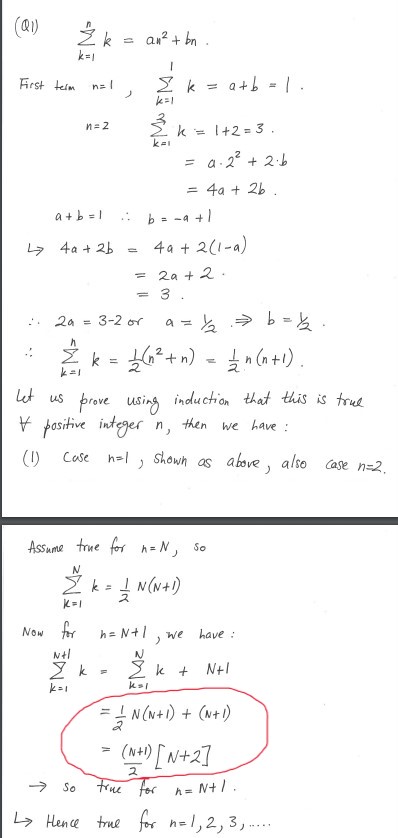 (Q1) n∑k=1 k = an² + bn .
First term n=1 , 1∑k=1 k = a+b = 1 .
n=2 3∑k=1 k = 1+2 = 3 .
= a·2² + 2·b
= 4a + 2b .
a+b=1 ∴ b = -a+1
↳ 4a + 2b = 4a + 2(1-a)
= 2a + 2 .
= 3 .
∴ 2a = 3-2 or a = 1/2 ⇒ b = 1/2 .
∴ n∑k=1 k = 1/2(n²+n) = 1/2 n(n+1) .
Let us prove using induction that this is true
∀ positive integer n, then we have :
(1) Case n=1 , shown as above, also case n=2.
Assume true for n=N, so
N∑k=1 k = 1/2 N(N+1)
Now for n=N+1 , we have :
N+1∑k=1 k = N∑k=1 k + N+1
= 1/2 N(N+1) + (N+1)
= (N+1)/2 [N+2]
→ so true for n=N+1 .
↳ Hence true for n=1, 2, 3, .....